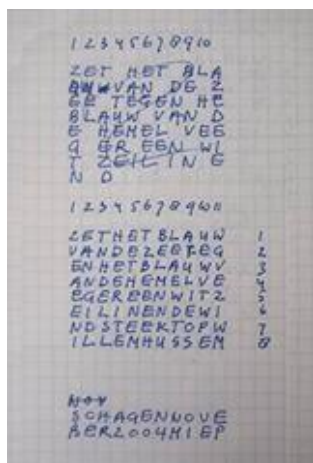 1 2 3 4 5 6 7 8 9 10
ZET HET BLA
UW VAN DE Z
EE TEGEN HE
BLAUW VAN D
E HEMEL VEE
G ER EEN WI
T ZEIL IN E
N D
1 2 3 4 5 6 7 8 9 10 11
ZETHETBLAUW 1
VANDEZEETEG 2
ENHETBLAUWV 3
ANDEHEMELVE 4
EGEREENWITZ 5
EILINENDEWI 6
NDSTEEKTOPW 7
ILLEMHUSSEM 8
NOV
SCHAGENNOVE
BER2004MIEP